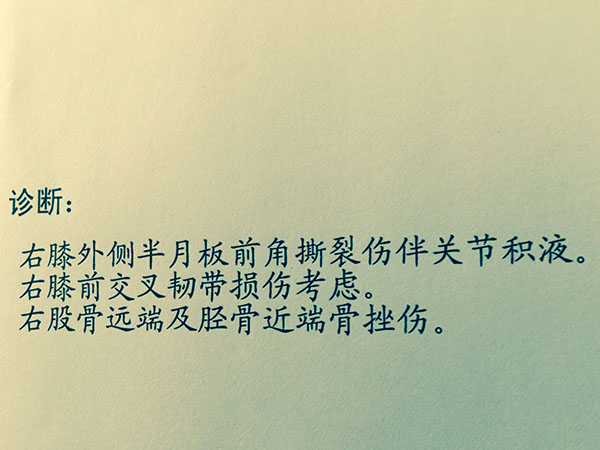 诊断：
右膝外侧半月板前角撕裂伤伴关节积液。
右膝前交叉韧带损伤考虑。
右股骨远端及胫骨近端骨挫伤。